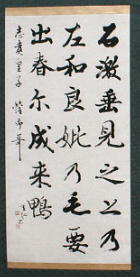 石激垂見之上乃
左和良妣乃毛要
出春尓成来鴨
志貴皇子 懽布筆